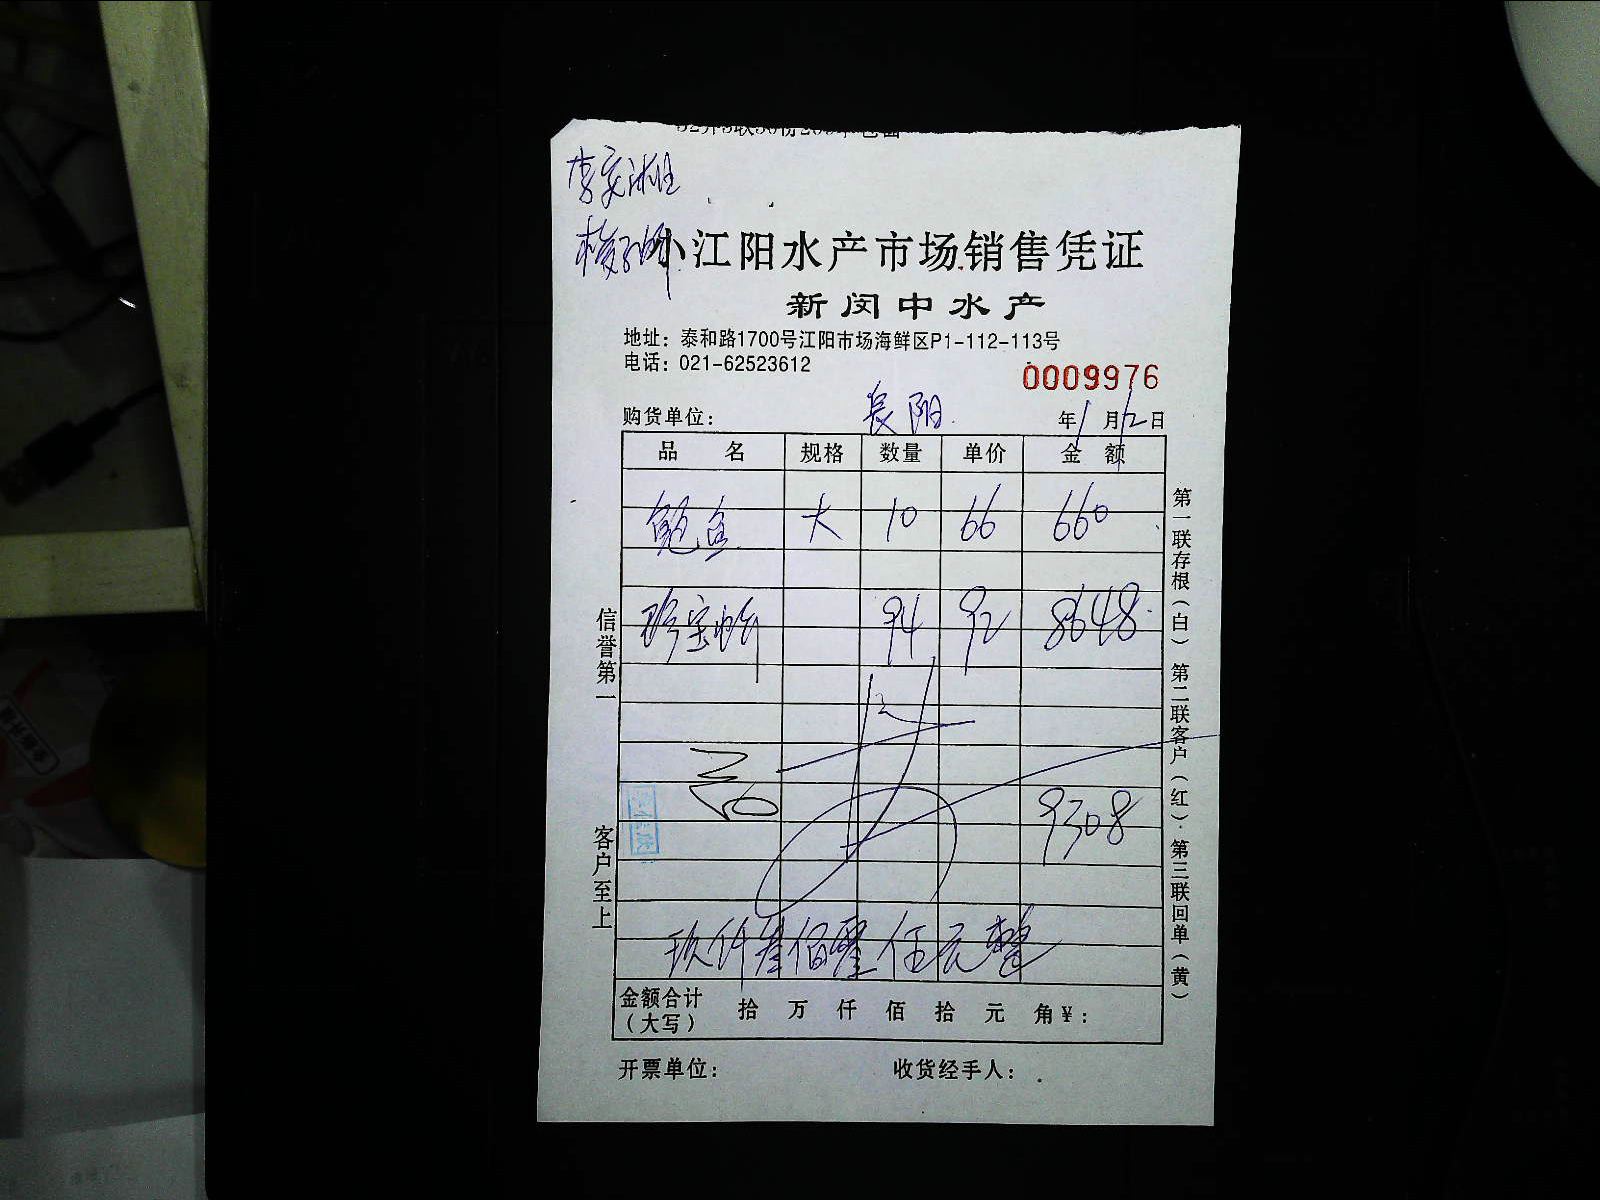 小江阳水产市场销售凭证
新闵中水产
地址：泰和路1700号江阳市场海鲜区P1-112-113号
电话：021-62523612
0009976
购货单位： 長阳 年1月12日
品 名 规格 数量 单价 金 额
鲍鱼 大 10 66 660
94 92 8648
9308
玖仟叁佰零 元整
金额合计（大写） 拾 万 仟 佰 拾 元 角￥：
开票单位： 收货经手人：
信誉第一 客户至上
第一联存根（白）第二联客户（红）·第三联回单（黄）